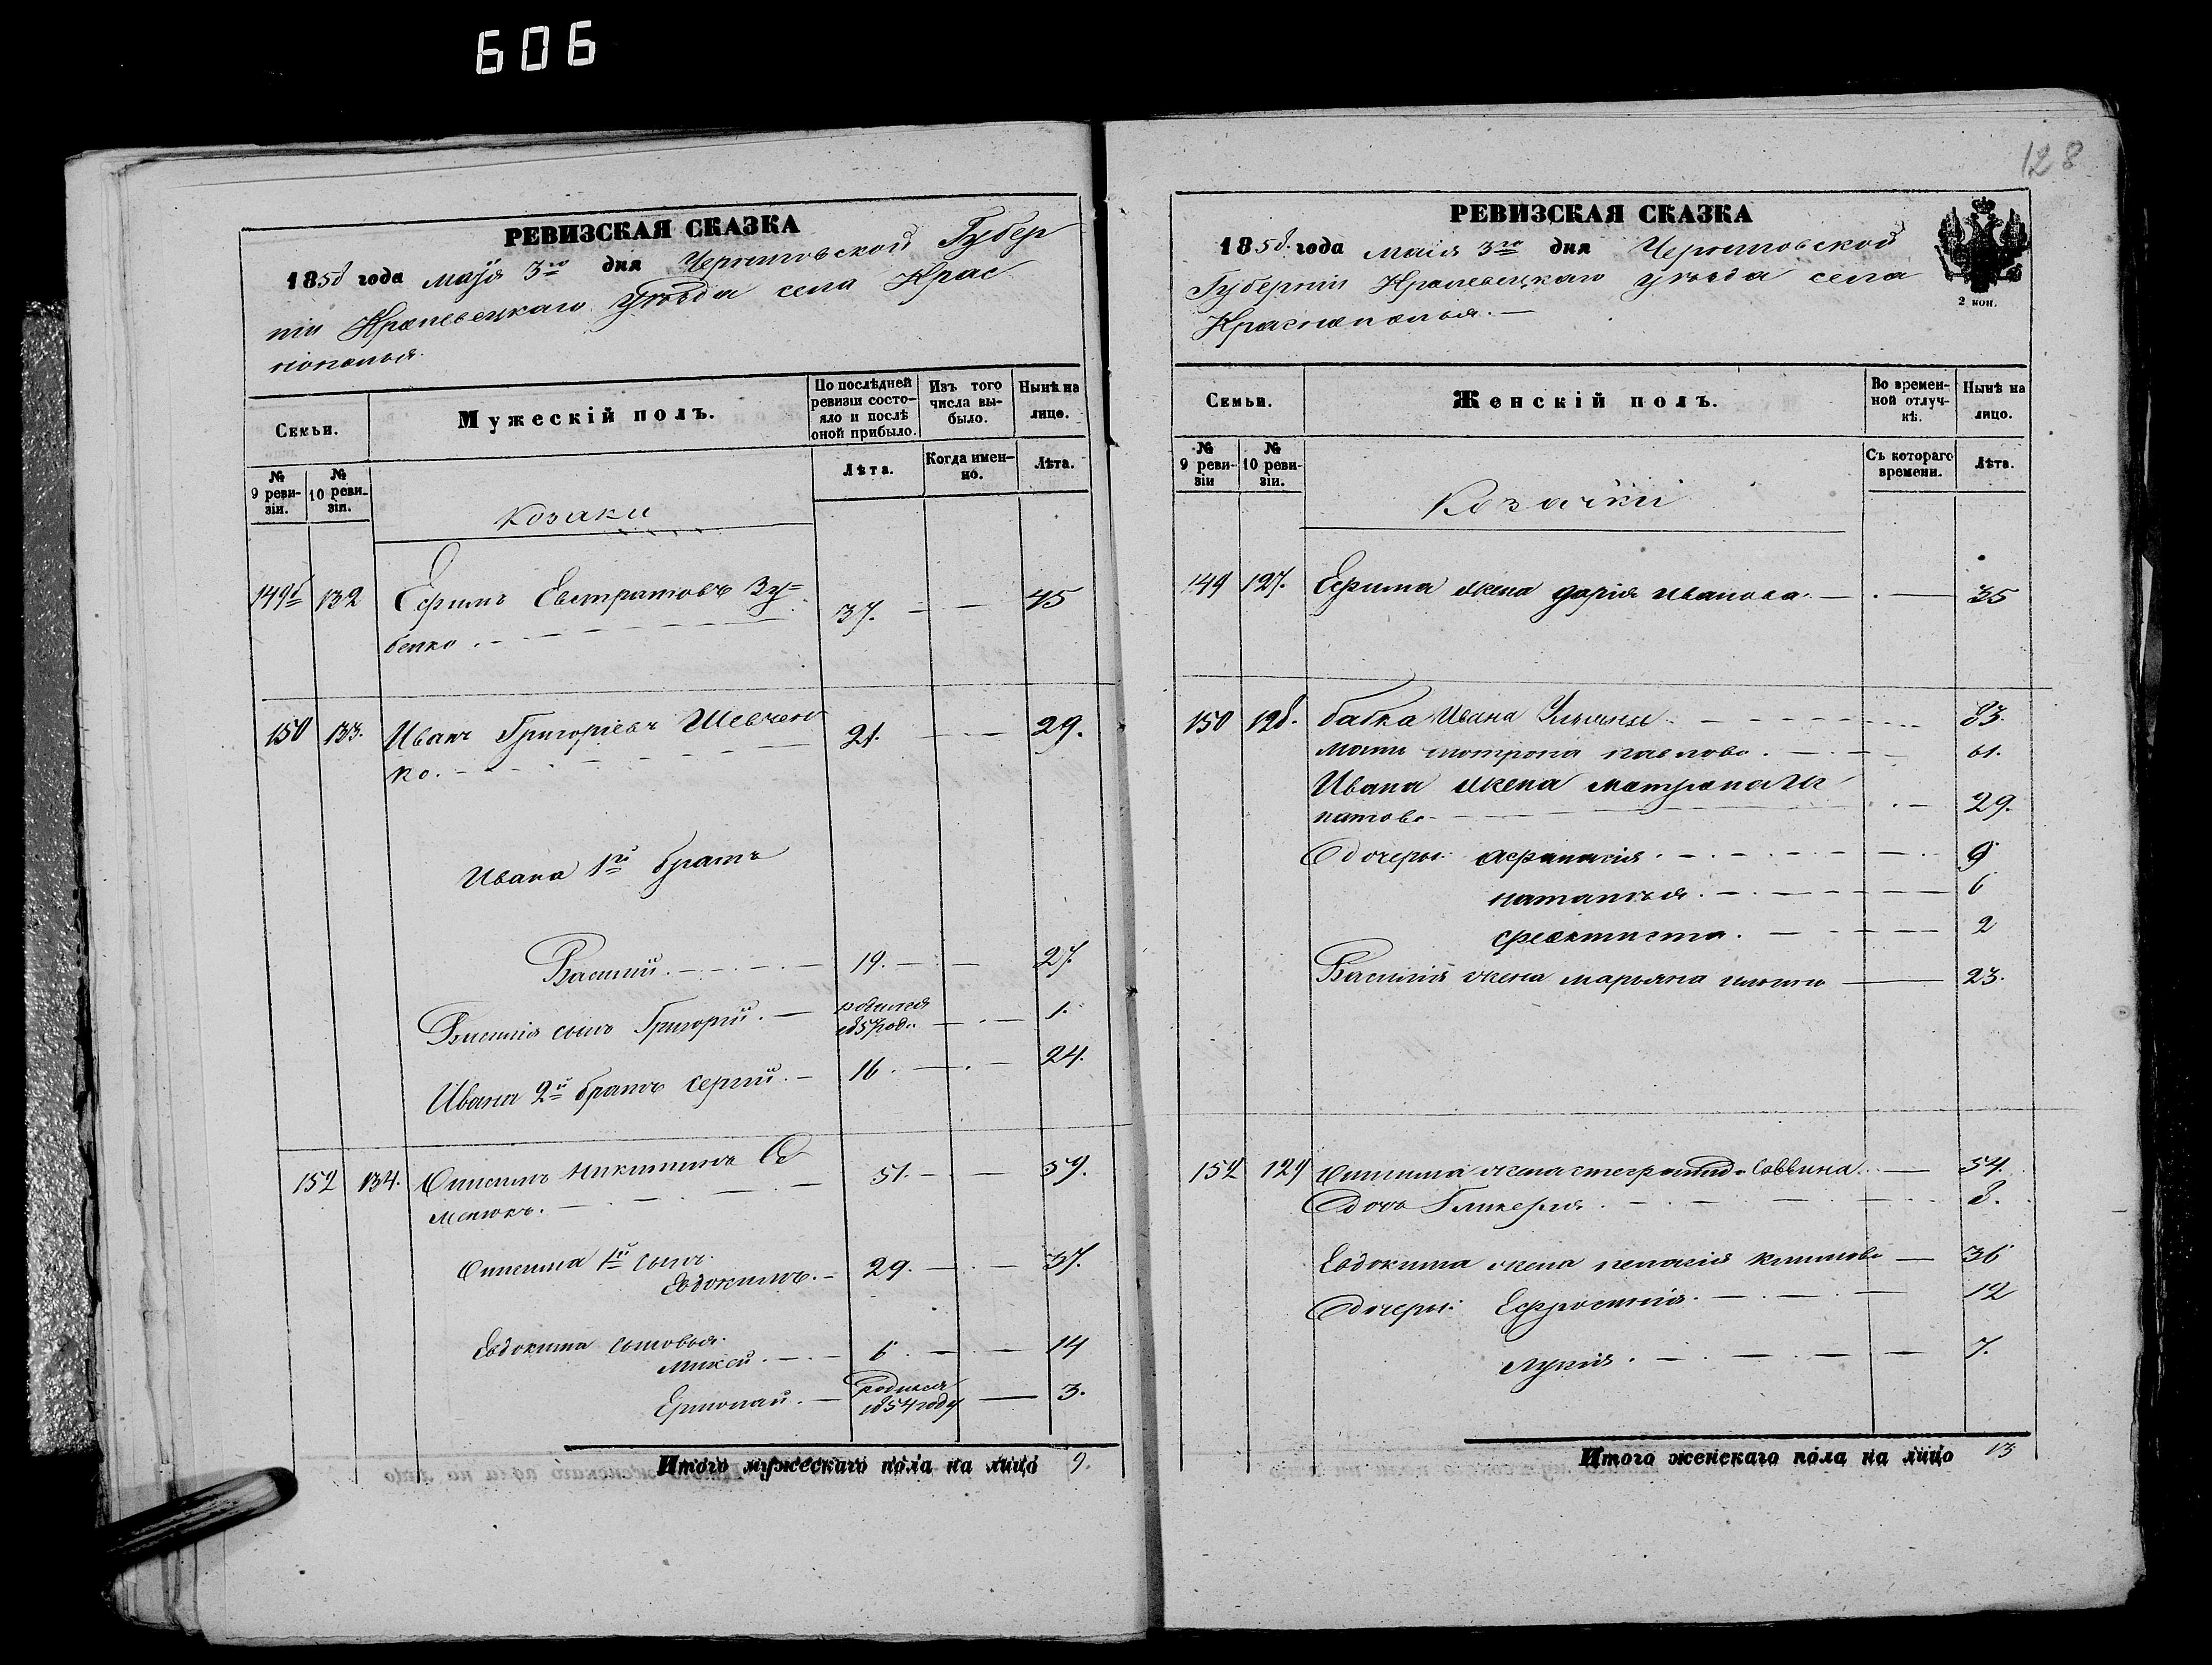 606
РЕВИЗСКАЯ СКАЗКА
1858 года маія 3го дня Черниговской Губер
ніи Кролевецкаго уѣзда села Крас
нополья.
Семьи.
Мужескій полъ.
По послѣдней ревизіи состояло и послѣ оной прибыло.
Изъ того числа выбыло.
Нынѣ на лице.
№ 9 ревизіи.
№ 10 ревизіи.
Козаки
Лѣта.
Когда именно.
Лѣта.
132 Ефимъ Евстратовъ Зу=
бенко 37. 45
150 133. Иванъ Григоріевъ Шевчен
ко. 21. 29.
Ивана 1й братъ
Василій. 19. 27.
Василія сынъ Григорій. родился 1857 год. 1.
Ивана 2й братъ Сергій. 16. 24.
152 134. Онисимъ Никитинъ 51. 59.
Онисима 1й сынъ
Евдокимъ. 29. 37.
Евдокима сыновья.
6. 14
Ермолай. родился 1854 году 3.
Итого мужескаго пола на лицо 9.
128
РЕВИЗСКАЯ СКАЗКА
1858. года маія 3го дня Черниговской
Губерніи Кролевецкаго уѣзда села
Краснополья.
2 коп.
Семьи.
Женскій полъ.
Во временной отлучкѣ.
Нынѣ на лицо.
№ 9 ревизіи
№ 10 ревизіи.
Козачки
Съ котораго времени.
Лѣта.
149 127. Ефима жена дарія иванова. 35
150 128. бабка Ивана 83.
мати павлова. 61.
Ивана жена матрона Иг
натова 29.
дочеры: афанасія. 9
наталья. 6
феоктиста. 2
Василія жена марьяна 23.
152 129 Онисима жена Саввина. 54.
дочь Гликерія. 8.
Евдокима жена пелагія климова 36
дочеры: Ефросинія. 12
лукія. 7.
Итого женскаго пола на лицо 13